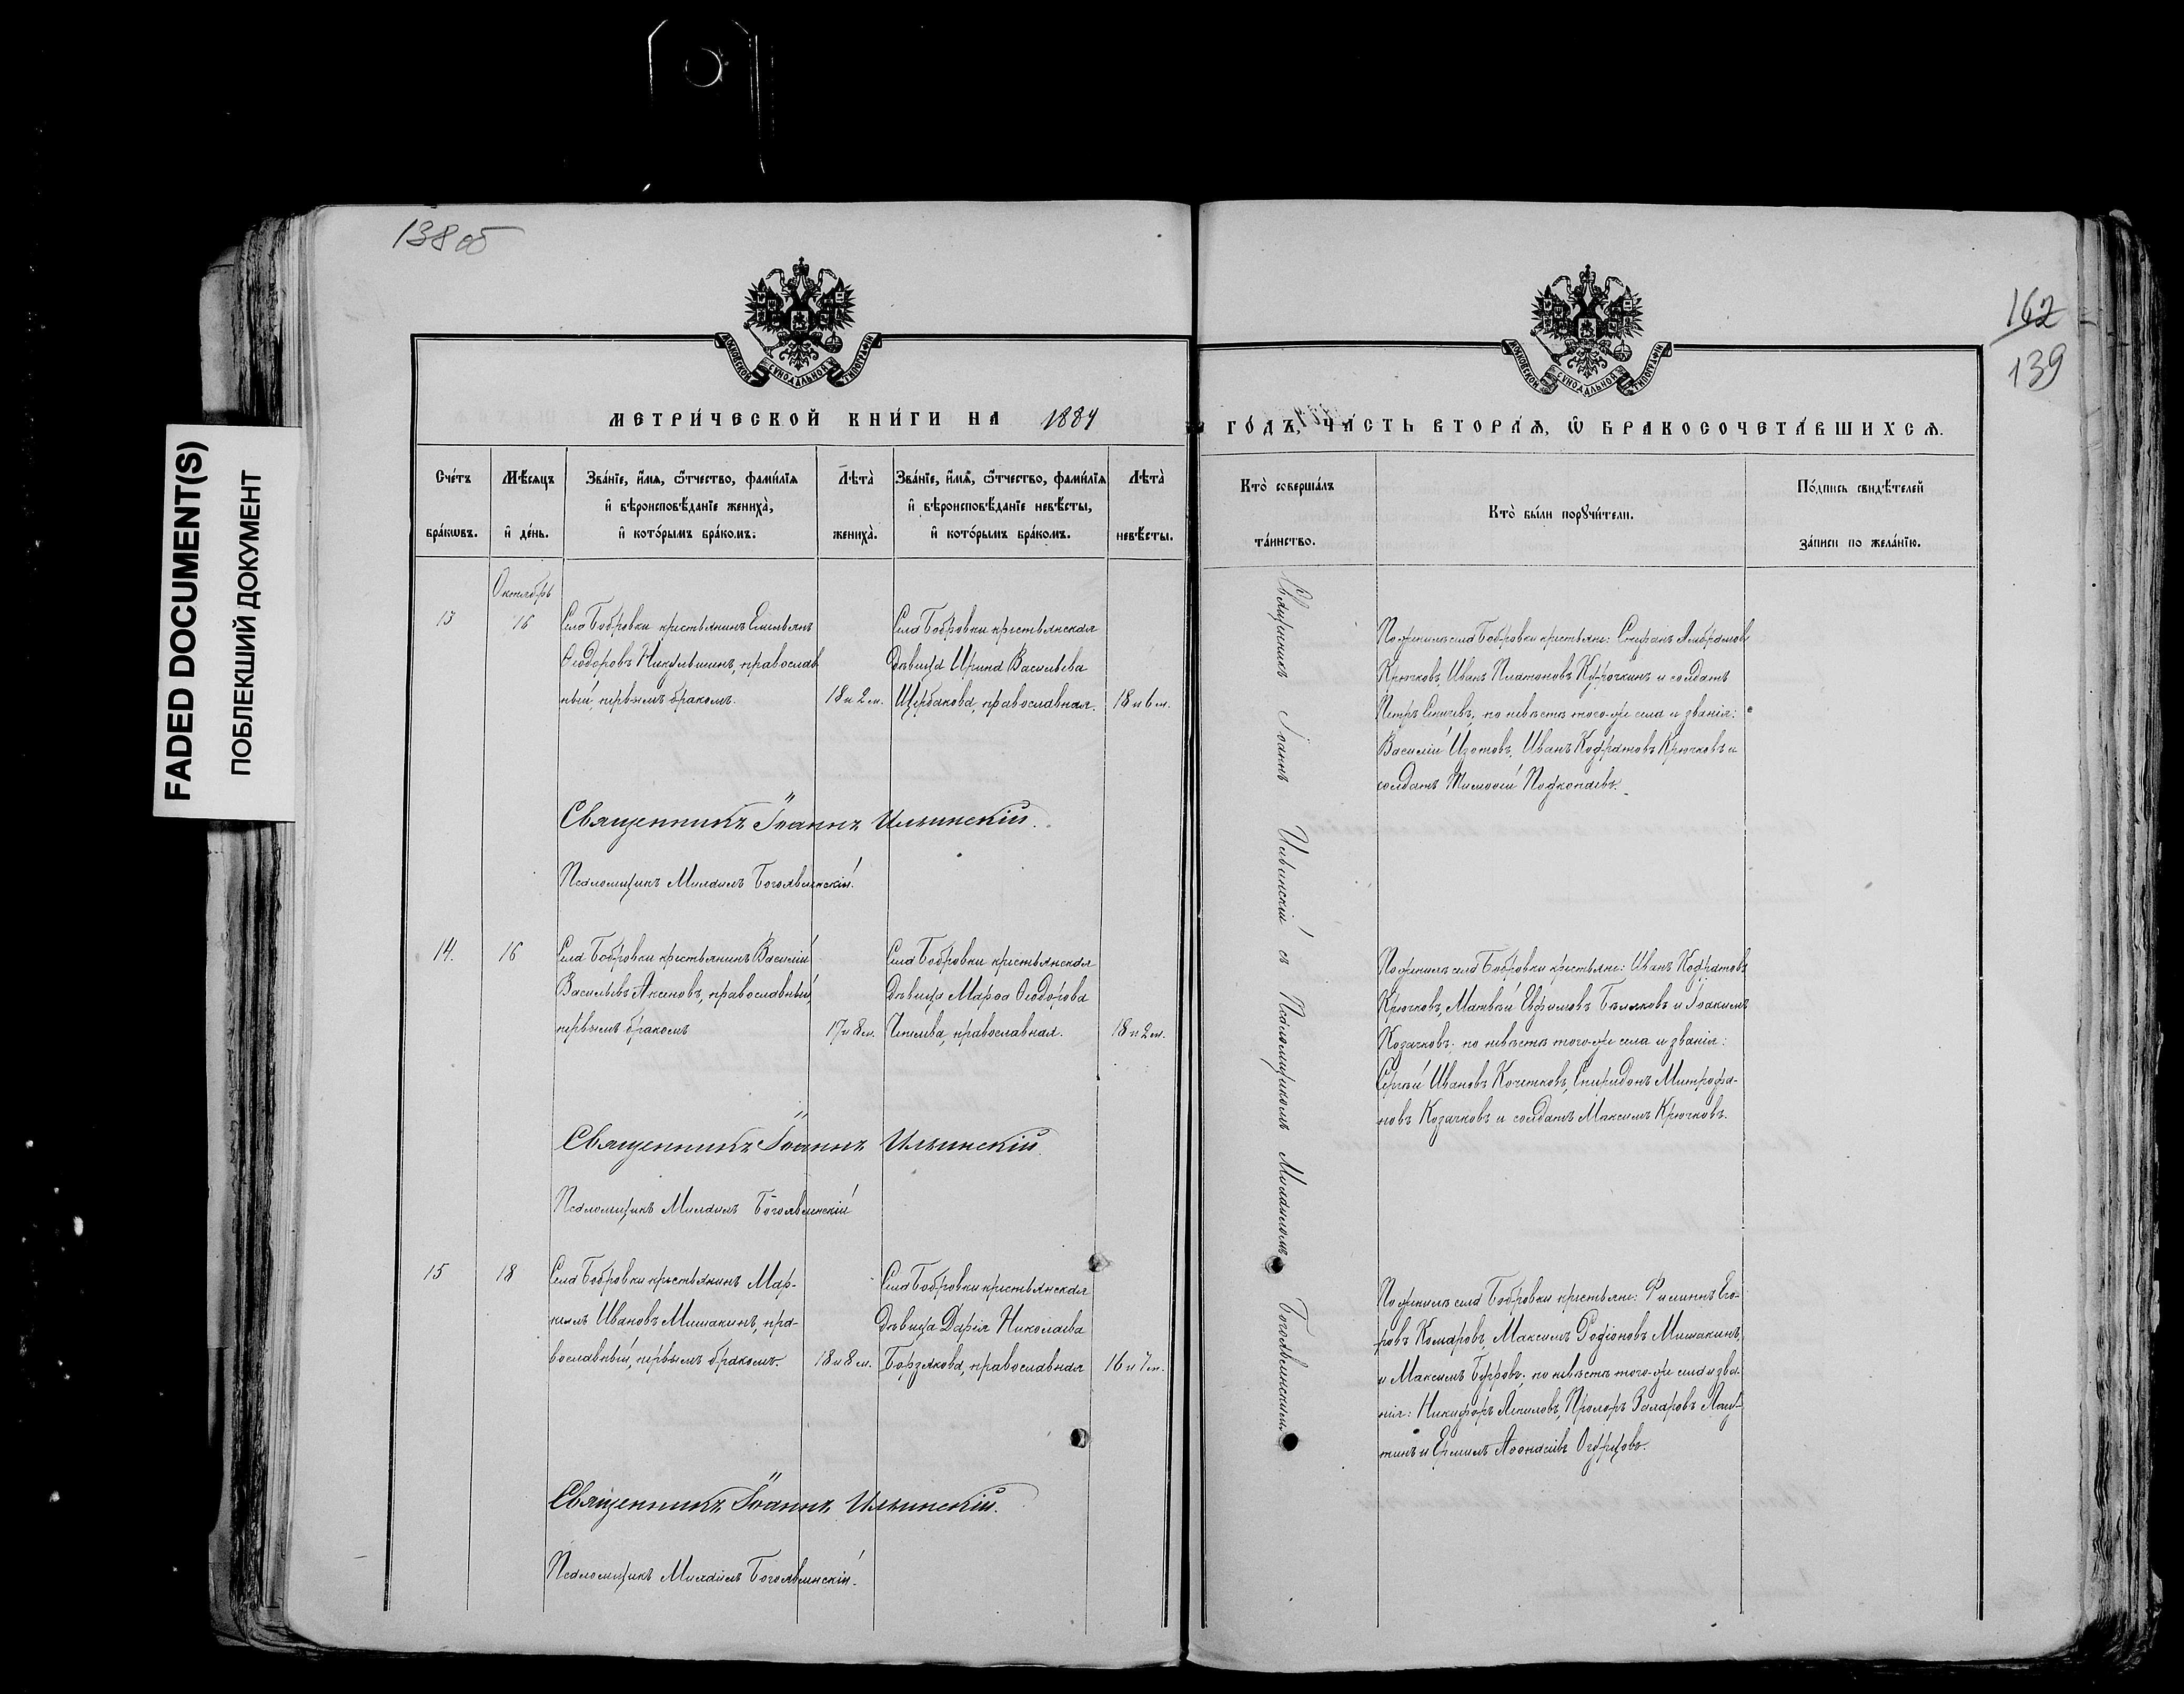 138 об
162
139
FADED DOCUMENT(S)
ПОБЛЕКШИЙ ДОКУМЕНТ
МОСКОВСКОЙ СѴНОДАЛЬНОЙ ТИПОГРАФІИ
МОСКОВСКОЙ СѴНОДАЛЬНОЙ ТИПОГРАФІИ
МЕТРИ́ЧЕСКОЙ КНИ́ГИ НА 1884
ГО́ДЪ, ЧА́СТЬ ВТОРА́Ѧ, Ѡ БРАКОСОЧЕТА́ВШИХСѦ.
Сче́тъ бра́кѡвъ.
Мѣ́сѧцъ и҆ де́нь.
Зва́нїе, и҆́мѧ, ѻ҆́тчество, фами́лїѧ
и҆ вѣроисповѣ́данїе жениха̀,
и҆ кото́рымъ бра́комъ.
Лѣ́та жениха̀.
Зва́нїе, и҆́мѧ, ѻ҆́тчество, фами́лїѧ
и҆ вѣроисповѣ́данїе невѣ́сты,
и҆ кото́рымъ бра́комъ.
Лѣ́та невѣ́сты.
Кто̀ соверша́лъ та́инство.
Кто̀ бы́ли порꙋчи́тели.
По́дпись свидѣ́телей за́писи по жела́нїю.
Октябрь
13
16
Села Бобровки крестьянинъ Емельянъ
Ѳеодоровъ Никульшинъ, православ
ный, первымъ бракомъ.
18 и 2 м.
Села Бобровки крестьянская
дѣвица Ирина Васильева
Щербакова, православная.
18 и 6 м.
Священникъ Іоаннъ Ильинскій съ Псаломщикомъ Михаиломъ Богоявленскимъ
По женихѣ села Бобровки крестьяне: Стефанъ
Крючковъ, Иванъ Платоновъ Курочкинъ и солдатъ
Петръ по невѣстѣ того-же села и званія:
Василій Изотовъ, Иванъ Кодратовъ Крючковъ и
солдатъ Тимоѳей Подкопаевъ.
Священникъ Іоаннъ Ильинскій.
Псаломщикъ Михаилъ Богоявленскій.
14.
16
Села Бобровки крестьянинъ Василій
Васильевъ Аксеновъ, православный,
первымъ бракомъ
17 и 8 м.
Села Бобровки крестьянская
дѣвица Марѳа Ѳеодорова
православная.
18 и 2 м.
По женихѣ села Бобровки крестьяне: Иванъ Кодратовъ
Крючковъ, Матвѣй Евфимовъ Бѣляковъ и Іоакимъ
Козачковъ; по невѣстѣ того-же села и званія:
Сергѣй Ивановъ Кочетковъ, Спиридонъ Митрофа-
новъ Козачковъ и солдатъ Максимъ Крючковъ.
Священникъ Іоаннъ Ильинскій.
Псаломщикъ Михаилъ Богоявленскій
15
18
Села Бобровки крестьянинъ Мар-
келъ Ивановъ Мишакинъ, пра-
вославный, первымъ бракомъ.
18 и 8 м.
Села Бобровки крестьянская
дѣвица Дарія Николаева
Борзякова, православная
16 и 7 м.
По женихѣ села Бобровки крестьяне: Филиппъ Его-
ровъ Комаровъ, Максимъ Родіоновъ Мишакинъ,
и Максимъ Буровъ; по невѣстѣ того-же села и зва-
нія: Никифоръ Акиловъ, Проворъ Захаровъ
и Ермилъ Аѳонасіевъ Огурцовъ.
Священникъ Іоаннъ Ильинскій.
Псаломщикъ Михаилъ Богоявленскій.